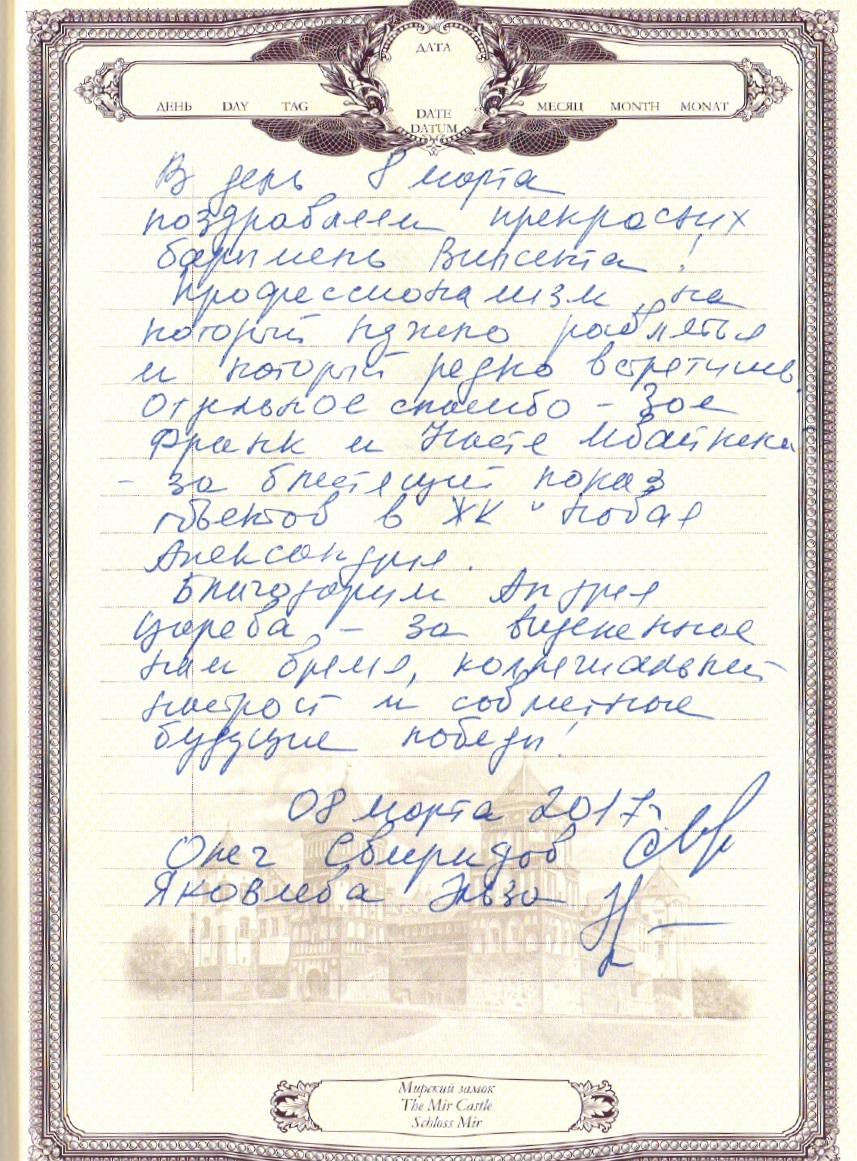 ДАТА
ДЕНЬ DAY TAG
DATE
DATUM
МЕСЯЦ MONTH MONAT
В день 8 марта
поздравляем прекрасных
барышень Винсента!
Профессионализм, на
который нужно равняться
и который редко встретишь.
Отдельное спасибо – Зое
Франк и Насте
– за блестящий показ
объектов в ЖК "Новая
Александрия.
Благодарим Андрея
Царева, – за
нам время, коллегиальный
настрой и совместные
будущие победы!
08 марта 2017г
Олег Свиридов
Яковлева Эльза
Мирский замок
The Mir Castle
Schloss Mir